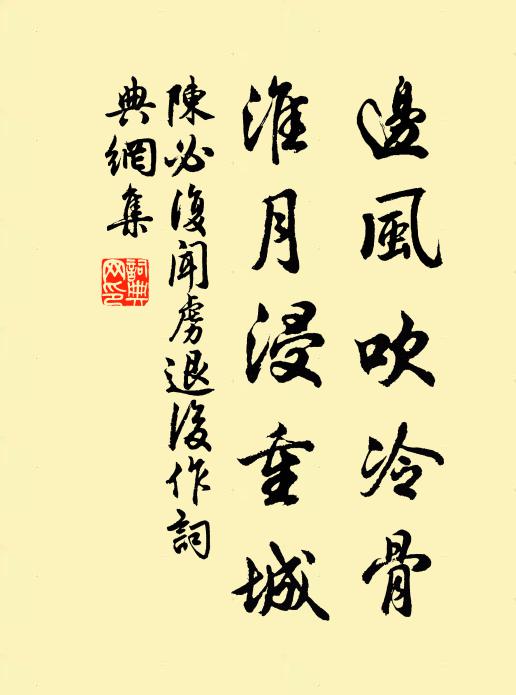 邊風吹冷骨
淮月浸重城
陳必復聞虜退後作詞
典網集
詞典網印